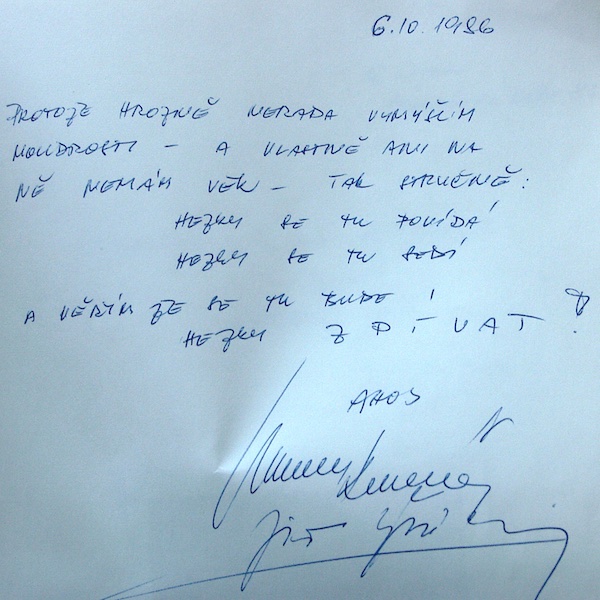 6.10.1986
PROTOŽE HROZNĚ NERADA VYMÝŠLÍM
MOUDROSTI – A VLASTNĚ ANI NA
NĚ NEMÁM VĚK – TAK STRUČNĚ:
HEZKY SE TU POVÍDÁ
HEZKY SE TU SEDÍ
A VĚŘÍM ŽE SE TU BUDE I
HEZKY ZPÍVAT!
AHOJ